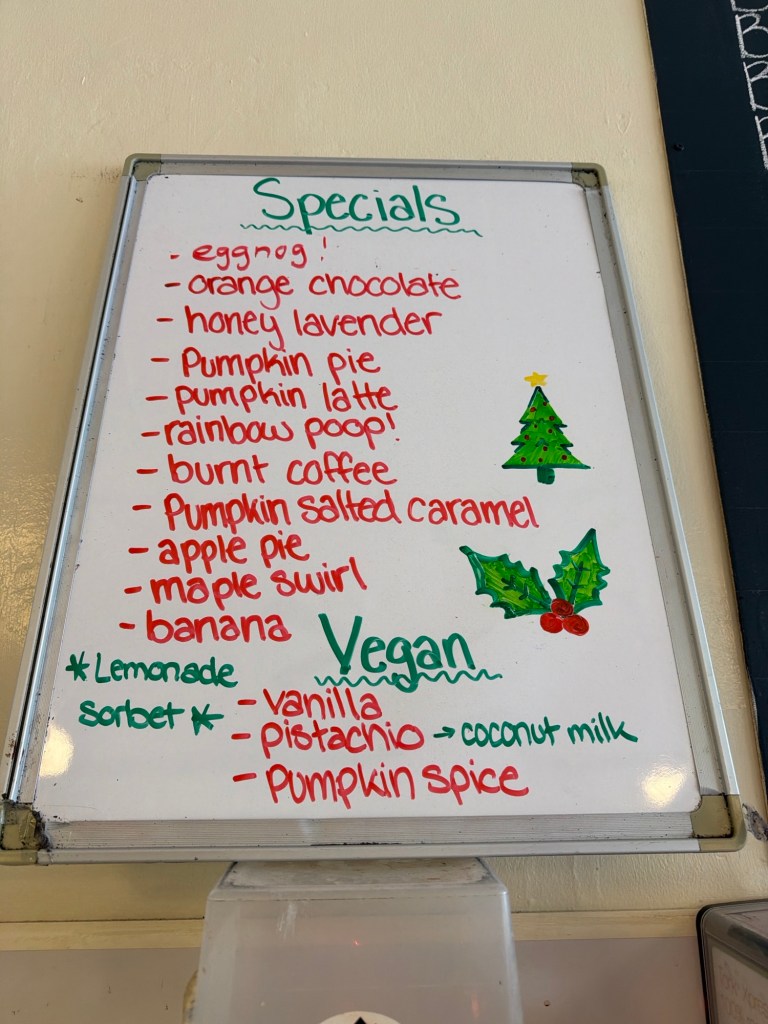 Specials
- eggnog!
- orange chocolate
- honey lavender
- Pumpkin pie
- pumpkin latte
- rainbow poop!
- burnt coffee
- Pumpkin salted caramel
- apple pie
- maple swirl
- banana
*Lemonade
sorbet*
Vegan
- vanilla
- pistachio → coconut milk
- pumpkin spice